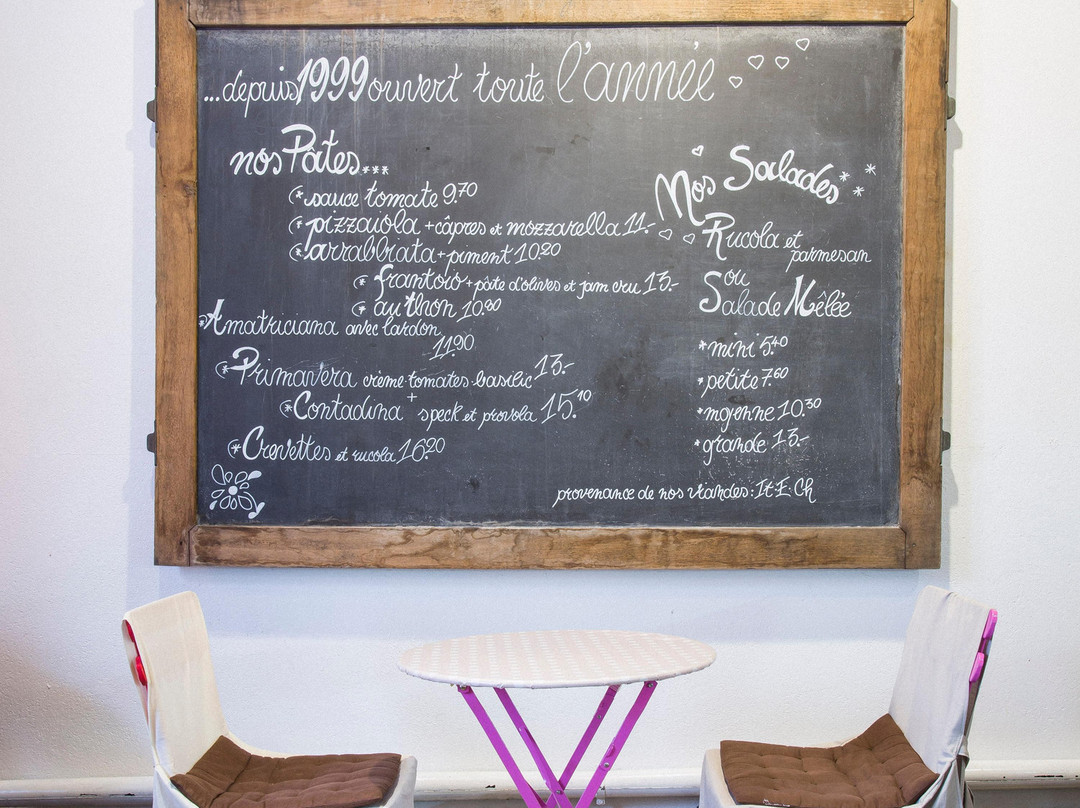 ...depuis 1999 ouvert toute l'année
nos Pâtes...
* sauce tomate 9.70
* pizzaiola + câpres et mozzarella 11.-
* arrabbiata + piment 10.20
* frantoio + pâte d'olives et jam cru 13.-
* au thon 10.90
* Amatriciana avec lardon
11.90
* Primavera crème tomates basilic 13.-
* Contadina + speck et provola 15.10
* Crevettes et rucola 16.20
Nos Salades
Rucola et
parmesan
ou
Salade Mêlée
* mini 5.40
* petite 7.60
* moyenne 10.30
* grande 13.-
provenance de nos viandes: It. E. Ch